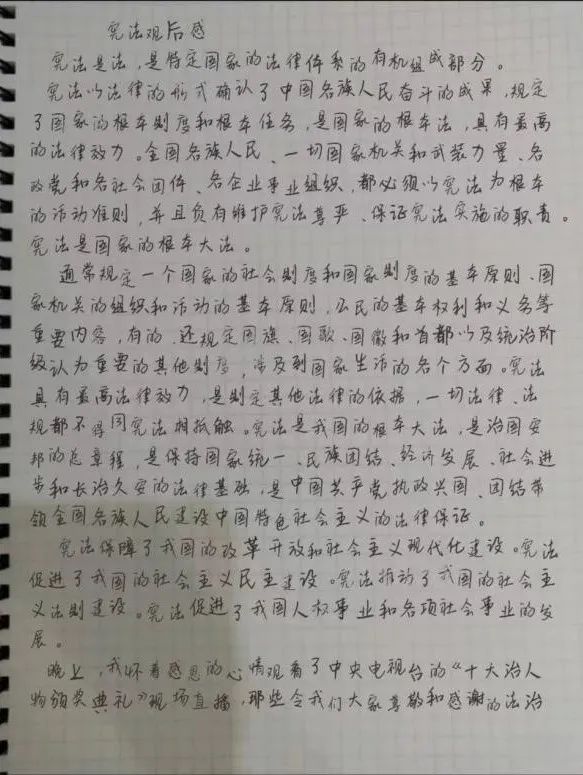 宪法观后感
宪法是法,是特定国家的法律体系的有机组成部分。
宪法以法律的形式确认了中国各族人民奋斗的成果,规定
了国家的根本制度和根本任务,是国家的根本法,具有最高
的法律效力。全国各族人民、一切国家机关和武装力量、各
政党和各社会团体、各企业事业组织,都必须以宪法为根本
的活动准则,并且负有维护宪法尊严、保证宪法实施的职责。
宪法是国家的根本大法。
通常规定一个国家的社会制度和国家制度的基本原则、国
家机关的组织和活动的基本原则,公民的基本权利和义务等
重要内容,有的、还规定国旗、国歌、国徽和首都以及统治阶
级认为重要的其他制度,涉及到国家生活的各个方面。宪法
具有最高法律效力,是制定其他法律的依据,一切法律、法
规都不得同宪法相抵触。宪法是我国的根本大法,是治国安
邦的总章程,是保持国家统一、民族团结、经济发展、社会进
步和长治久安的法律基础,是中国共产党执政兴国、团结带
领全国各族人民建设中国特色社会主义的法律保证。
宪法保障了我国的改革开放和社会主义现代化建设。宪法
促进了我国的社会主义民主建设。宪法推动了我国的社会主
义法制建设。宪法促进了我国人权事业和各项社会事业的发
展。
晚上,我怀着感恩的心情观看了中央电视台的“十大治人
物颁奖典礼”现场直播,那些令我们大家尊敬和感谢的法治